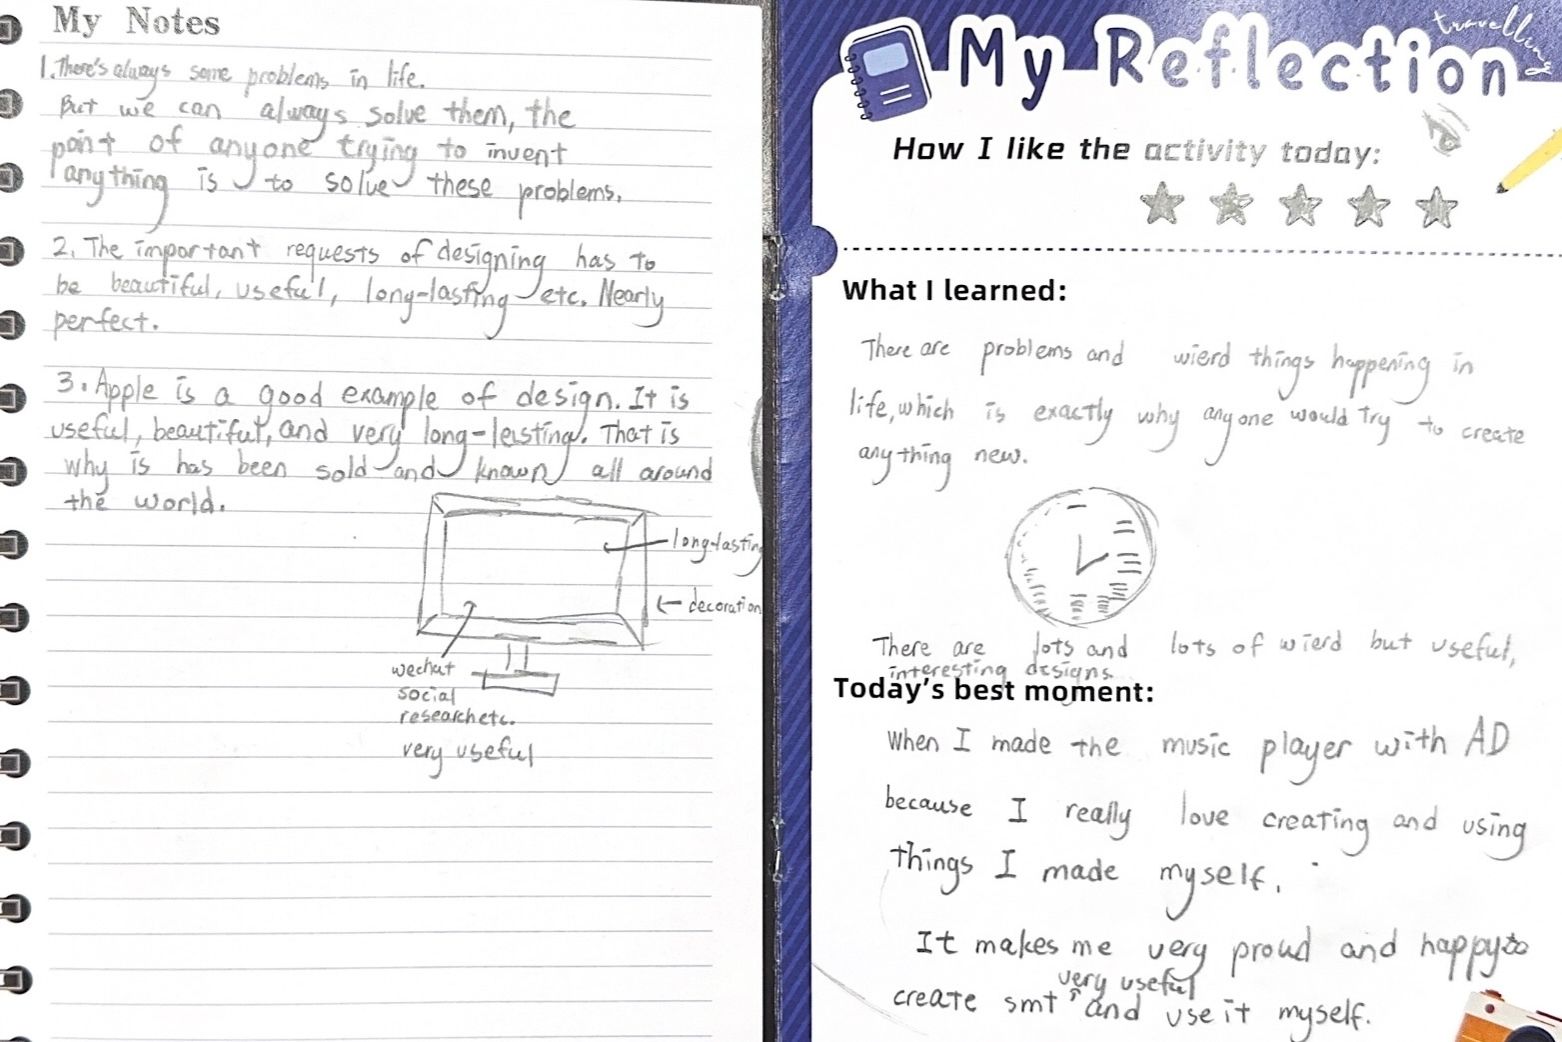 My Notes
1. There's always some problems in life.
But we can always solve them, the
point of anyone trying to invent
anything is to solve these problems.
2. The important requests of designing has to
be beautiful, useful, long-lasting etc. Nearly
perfect.
3. Apple is a good example of design. It is
useful, beautiful, and very long-leisting. That is
why is has been sold and known all around
the world.
long-lasting
decoration
wechat
social
research etc.
very useful
travelling
My Reflection
How I like the activity today:
What I learned:
There are problems and wierd things happening in
life, which is exactly why anyone would try to create
anything new.
There are lots and lots of wierd but useful,
interesting designs.
Today's best moment:
When I made the music player with AD
because I really love creating and using
things I made myself.
It makes me very proud and happy to
very useful
create smt ^ and use it myself.